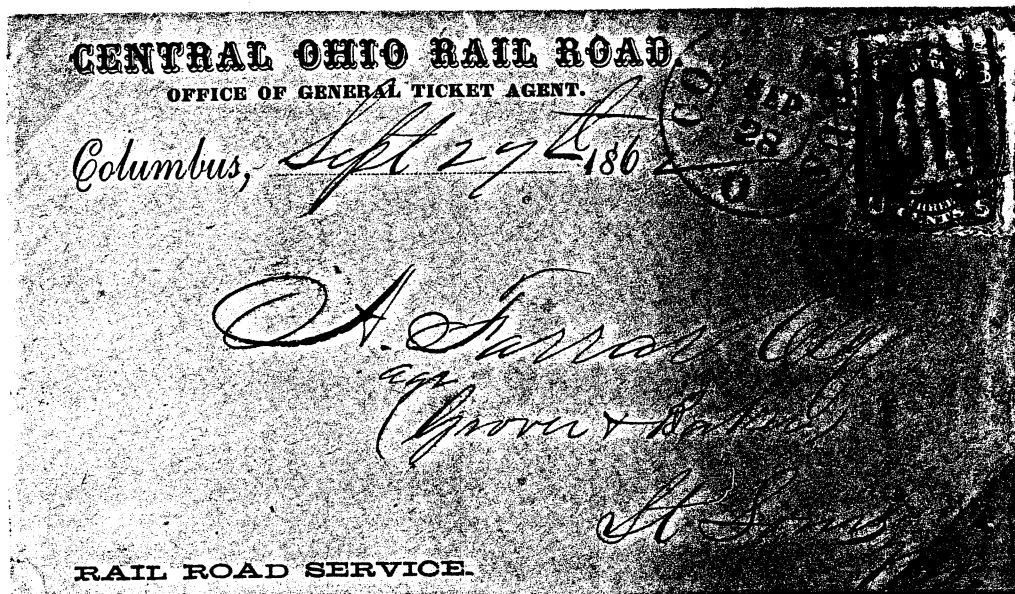 CENTRAL OHIO RAIL ROAD.
OFFICE OF GENERAL TICKET AGENT.
Columbus, Sept 29th 186
SEP
28
THREE
CENTS
A. Farrar Esq
agt
(Grover & Baker)
St Louis
RAIL ROAD SERVICE.